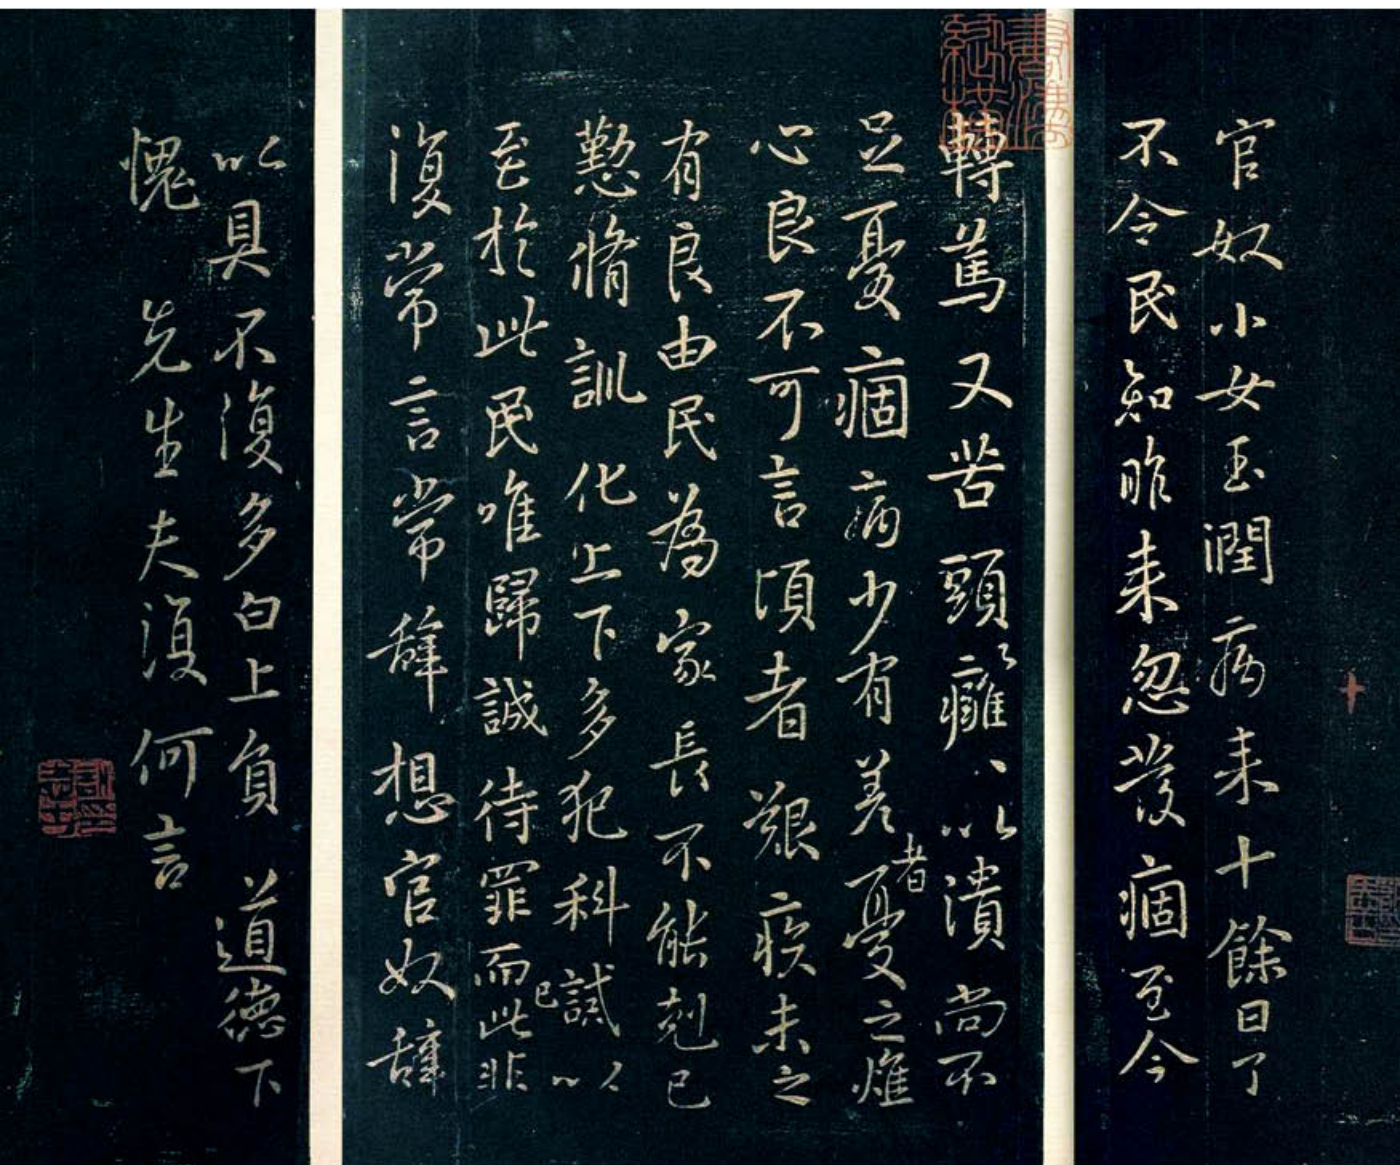 官奴小女玉潤病来十餘日了
不令民知昨来忽發痼至今
轉篤又苦頭癰〻以潰尚不
足憂痼病少有差者憂之燋
心良不可言頃者艱疾未之
有良由民為家長不能剋己
懃脩訓化上下多犯科誡以
至於此民唯歸誠待罪而已此非
復常言常辭想官奴辭
以具不復多白上負道德下
愧先生夫復何言